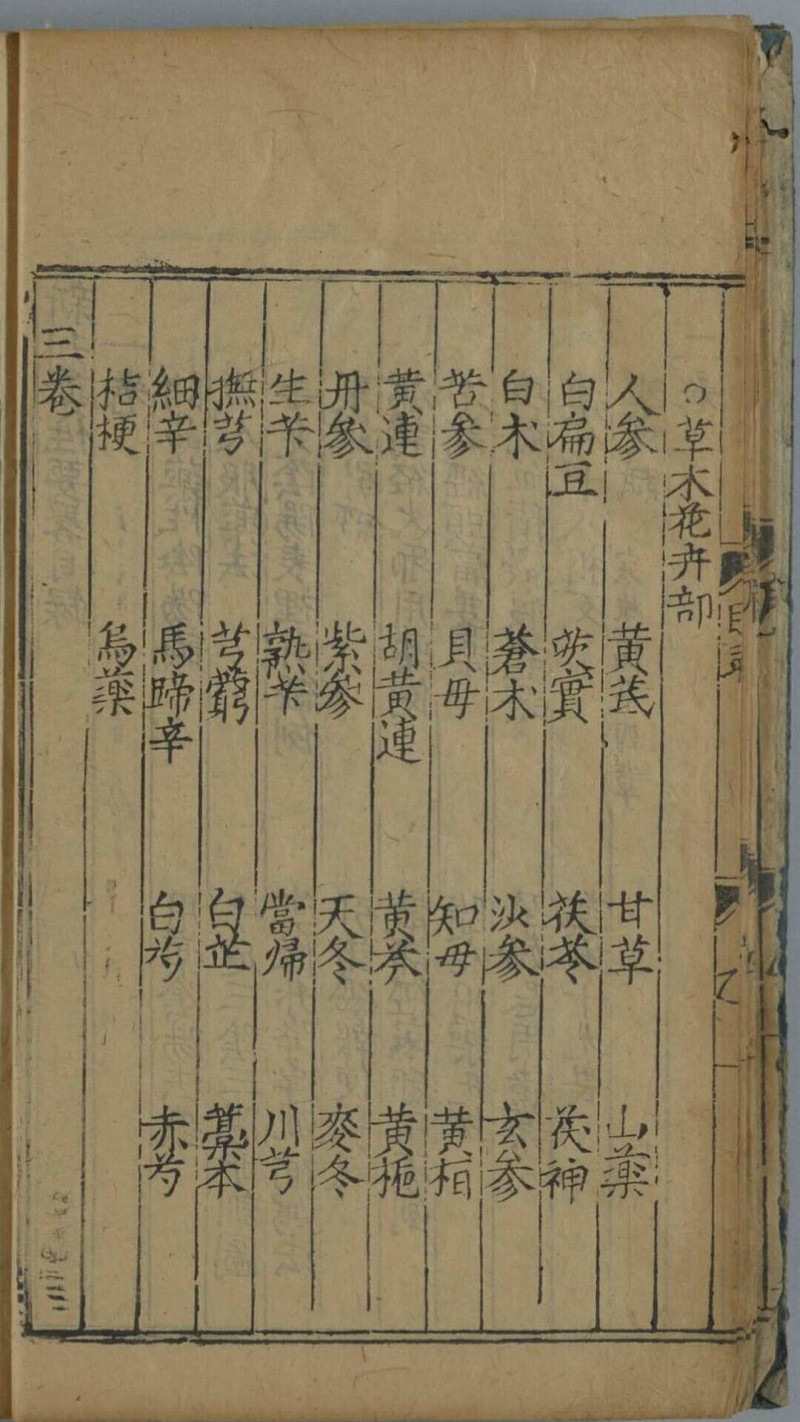 草木花卉部
人參 黄芪 甘草 山藥
白扁豆 芡實 茯苓 茯神
白术 蒼术 沙参 玄参
苦參 貝母 知母 黄栢
黄連 胡黄連 黄芩 黄梔
丹參 紫參 天冬 麥冬
生芐 熟芐 當帰 川芎
撫芎 芎藭 白芷 藁本
細辛 馬蹄辛 白芍 赤芍
桔梗 烏藥
三卷